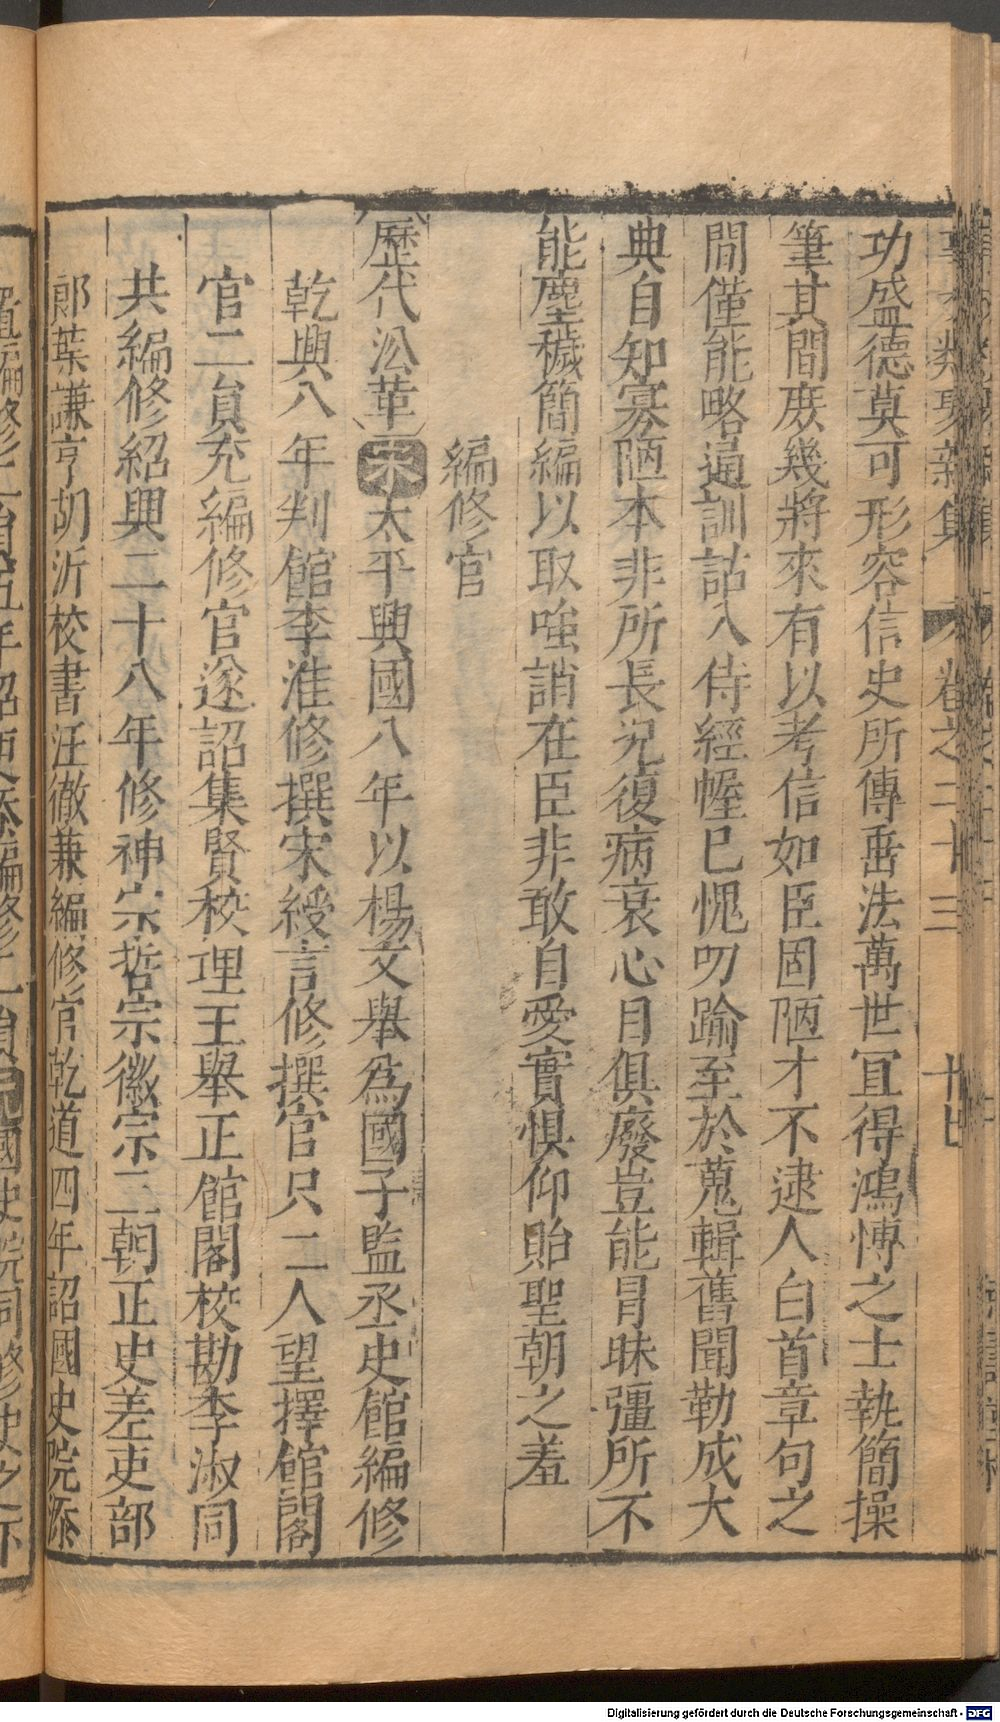 事文類聚新集 卷之二十三
功盛德莫可形容信史所傳垂法萬世冝得鴻愽之士執簡操
筆其間庻幾將來有以考信如臣固陋才不逮人白首章句之
間僅能略通訓詁入侍經幄已愧叨踰至於蒐輯舊聞勒成大
典自知寡陋本非所長况復病衰心目俱廢豈能冒昧彊所不
能塵穢簡編以取嗤誚在臣非敢自愛實惧仰貽聖朝之羞
編修官
歷代沿革 宋 太平興國八年以楊文舉爲國子監丞史館編修
乾興八年判館李淮修撰宋綬言修撰官只二人望擇館閣
官二員充編修官遂詔集賢校理王舉正館閣校勘李淑同
共編修紹興二十八年修神宗哲宗徽宗三朝正史差吏部
郎葉謙亨胡沂校書汪徹兼編修官乾道四年詔國史院添
置編修二員五年詔更添編修一員 國史院同修史之下
Digitalisierung gefördert durch die Deutsche Forschungsgemeinschaft - DFG